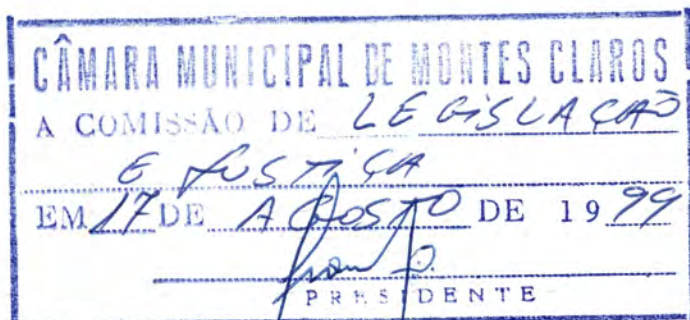 CÂMARA MUNICIPAL DE MONTES CLAROS
A COMISSÃO DE LEGISLAÇÃO
E JUSTIÇA
EM 17 DE AGOSTO DE 1999
PRESIDENTE